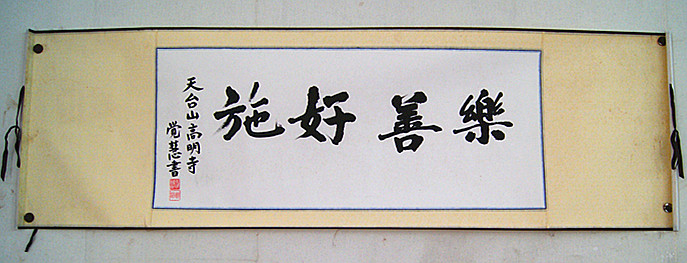 樂善好施
天台山高明寺
覺慧書